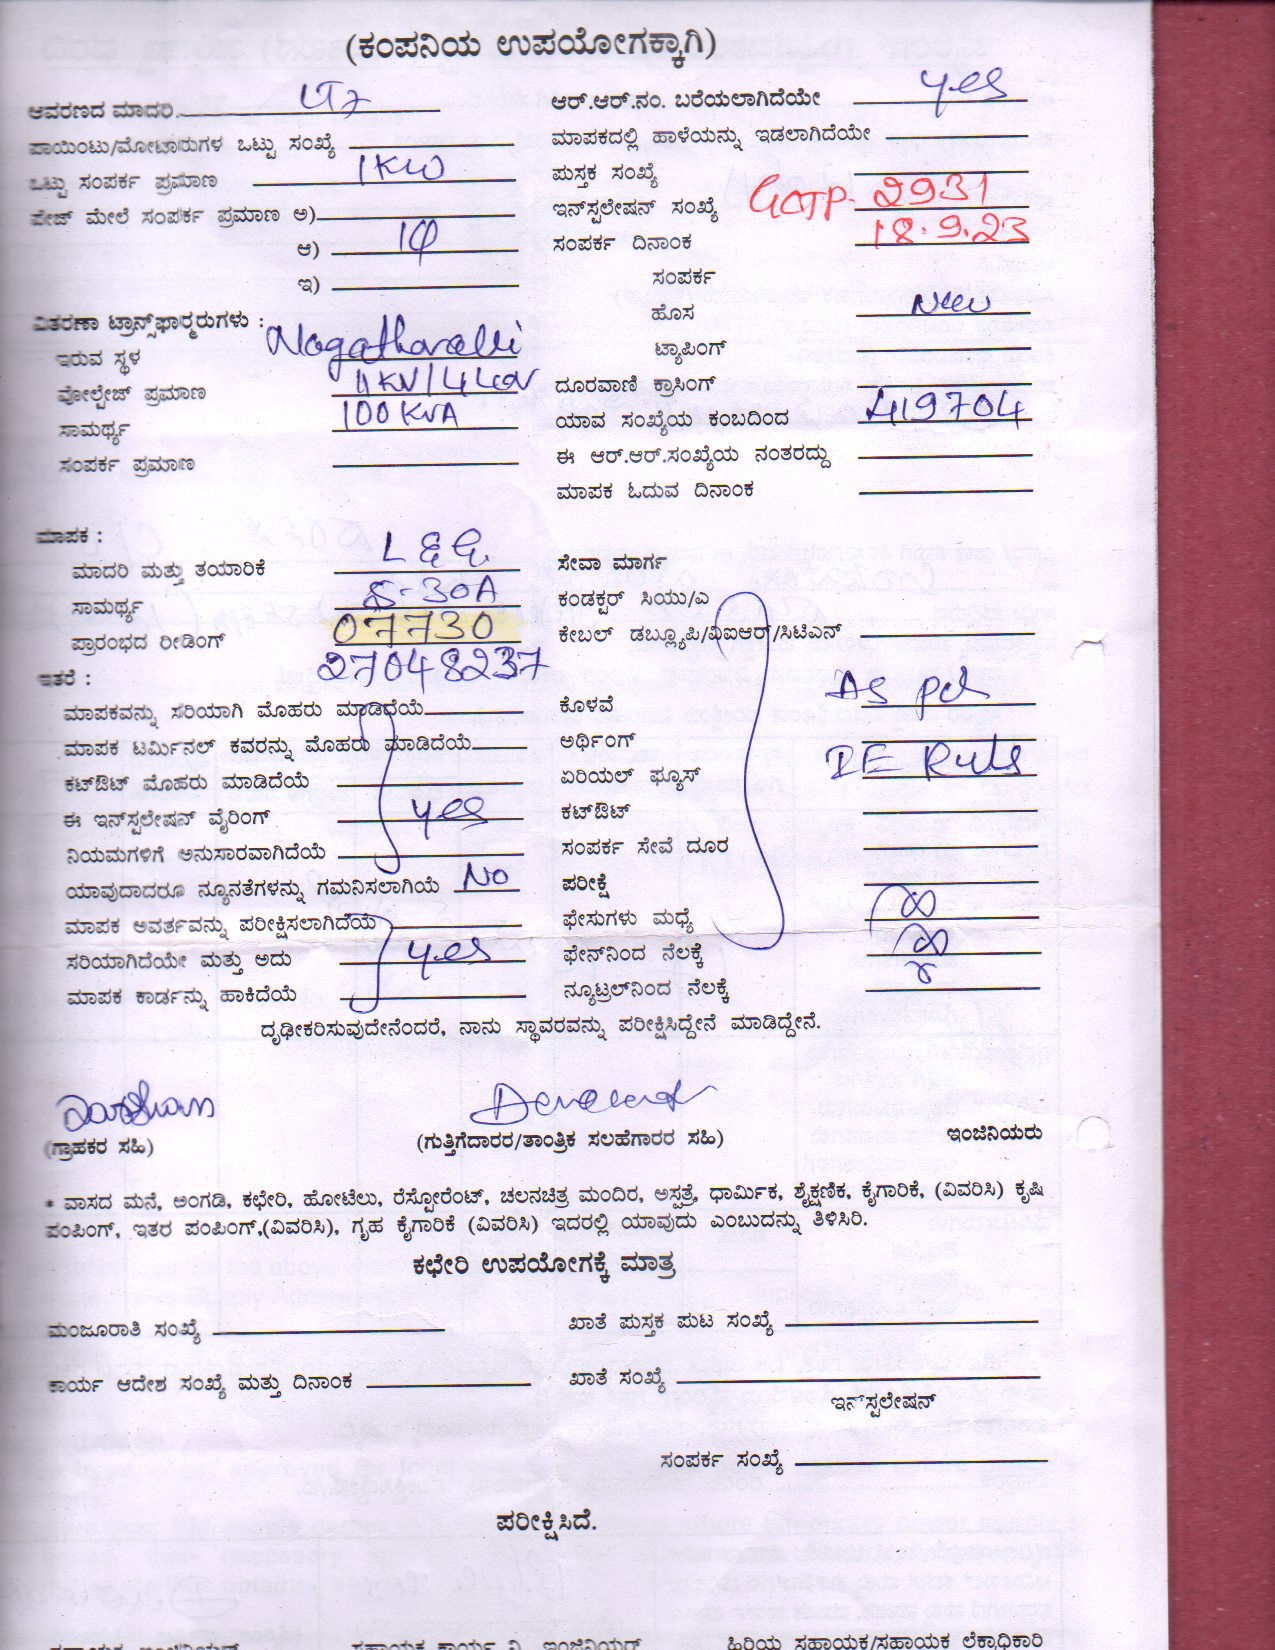 (ಕಂಪನಿಯ ಉಪಯೋಗಕ್ಕಾಗಿ)
ಆವರಣದ ಮಾದರಿ LT7 ಆರ್.ಆರ್.ನಂ. ಬರೆಯಲಾಗಿದೆಯೇ yes
ಪಾಯಿಂಟು/ಮೋಟಾರುಗಳ ಒಟ್ಟು ಸಂಖ್ಯೆ ಮಾಪಕದಲ್ಲಿ ಹಾಳೆಯನ್ನು ಇಡಲಾಗಿದೆಯೇ
ಒಟ್ಟು ಸಂಪರ್ಕ ಪ್ರಮಾಣ 1KW ಪುಸ್ತಕ ಸಂಖ್ಯೆ
ಪೇಜ್ ಮೇಲೆ ಸಂಪರ್ಕ ಪ್ರಮಾಣ ಅ) ಇನ್‌ಸ್ಟಲೇಷನ್ ಸಂಖ್ಯೆ GOTP- 2931
ಆ) 1φ ಸಂಪರ್ಕ ದಿನಾಂಕ 18.9.23
ಇ) ಸಂಪರ್ಕ
ವಿತರಣಾ ಟ್ರಾನ್ಸ್‌ಫಾರ್ಮರುಗಳು : ಹೊಸ New
ಇರುವ ಸ್ಥಳ Nagathavalli ಟ್ಯಾಪಿಂಗ್
ವೋಲ್ಟೇಜ್ ಪ್ರಮಾಣ 11KV/440V ದೂರವಾಣಿ ಕ್ರಾಸಿಂಗ್
ಸಾಮರ್ಥ್ಯ 100KVA ಯಾವ ಸಂಖ್ಯೆಯ ಕಂಬದಿಂದ 419704
ಸಂಪರ್ಕ ಪ್ರಮಾಣ ಈ ಆರ್.ಆರ್.ಸಂಖ್ಯೆಯ ನಂತರದ್ದು
ಮಾಪಕ ಓದುವ ದಿನಾಂಕ
ಮಾಪಕ :
ಮಾದರಿ ಮತ್ತು ತಯಾರಿಕೆ L&G ಸೇವಾ ಮಾರ್ಗ
ಸಾಮರ್ಥ್ಯ 5-30A ಕಂಡಕ್ಟರ್ ಸಿಯು/ಎ
ಪ್ರಾರಂಭದ ರೀಡಿಂಗ್ 07730 ಕೇಬಲ್ ಡಬ್ಲ್ಯೂಪಿ/ವಿಐಆರ್/ಸಿಟಿಎನ್
ಇತರೆ : 27048237
ಮಾಪಕವನ್ನು ಸರಿಯಾಗಿ ಮೊಹರು ಮಾಡಿದೆಯೆ ಕೊಳವೆ As per
ಮಾಪಕ ಟರ್ಮಿನಲ್ ಕವರನ್ನು ಮೊಹರು ಮಾಡಿದೆಯೆ ಅರ್ಥಿಂಗ್
ಕಟ್‌ಔಟ್ ಮೊಹರು ಮಾಡಿದೆಯೆ ಏರಿಯಲ್ ಫ್ಯೂಸ್ IE Ruls
ಈ ಇನ್‌ಸ್ಟಲೇಷನ್ ವೈರಿಂಗ್ yes ಕಟ್‌ಔಟ್
ನಿಯಮಗಳಿಗೆ ಅನುಸಾರವಾಗಿದೆಯೆ ಸಂಪರ್ಕ ಸೇವೆ ದೂರ
ಯಾವುದಾದರೂ ನ್ಯೂನತೆಗಳನ್ನು ಗಮನಿಸಲಾಗಿಯೆ No ಪರೀಕ್ಷೆ
ಮಾಪಕ ಅವರ್ತವನ್ನು ಪರೀಕ್ಷಿಸಲಾಗಿದೆಯೆ ಫೇಸುಗಳು ಮಧ್ಯೆ ∞
ಸರಿಯಾಗಿದೆಯೇ ಮತ್ತು ಅದು yes ಫೇಸ್‌ನಿಂದ ನೆಲಕ್ಕೆ ∞
ಮಾಪಕ ಕಾರ್ಡನ್ನು ಹಾಕಿದೆಯೆ ನ್ಯೂಟ್ರಲ್‌ನಿಂದ ನೆಲಕ್ಕೆ
ದೃಢೀಕರಿಸುವುದೇನೆಂದರೆ, ನಾನು ಸ್ಥಾವರವನ್ನು ಪರೀಕ್ಷಿಸಿದ್ದೇನೆ ಮಾಡಿದ್ದೇನೆ.
(ಗ್ರಾಹಕರ ಸಹಿ) (ಗುತ್ತಿಗೆದಾರರ/ತಾಂತ್ರಿಕ ಸಲಹೆಗಾರರ ಸಹಿ) ಇಂಜಿನಿಯರು
* ವಾಸದ ಮನೆ, ಅಂಗಡಿ, ಕಛೇರಿ, ಹೋಟೆಲು, ರೆಸ್ಟೋರೆಂಟ್, ಚಲನಚಿತ್ರ ಮಂದಿರ, ಅಸ್ಪತ್ರೆ, ಧಾರ್ಮಿಕ, ಶೈಕ್ಷಣಿಕ, ಕೈಗಾರಿಕೆ, (ವಿವರಿಸಿ) ಕೃಷಿ
ಪಂಪಿಂಗ್, ಇತರ ಪಂಪಿಂಗ್,(ವಿವರಿಸಿ), ಗೃಹ ಕೈಗಾರಿಕೆ (ವಿವರಿಸಿ) ಇದರಲ್ಲಿ ಯಾವುದು ಎಂಬುದನ್ನು ತಿಳಿಸಿರಿ.
ಕಛೇರಿ ಉಪಯೋಗಕ್ಕೆ ಮಾತ್ರ
ಮಂಜೂರಾತಿ ಸಂಖ್ಯೆ ಖಾತೆ ಪುಸ್ತಕ ಪುಟ ಸಂಖ್ಯೆ
ಕಾರ್ಯ ಆದೇಶ ಸಂಖ್ಯೆ ಮತ್ತು ದಿನಾಂಕ ಖಾತೆ ಸಂಖ್ಯೆ
ಇನ್‌ಸ್ಟಲೇಷನ್
ಸಂಪರ್ಕ ಸಂಖ್ಯೆ
ಪರೀಕ್ಷಿಸಿದೆ.
ಸಹಾಯಕ ಇಂಜಿನಿಯರ್ ಸಹಾಯಕ ಕಾರ್ಯ ನಿ. ಇಂಜಿನಿಯರ್ ಹಿರಿಯ ಸಹಾಯಕ/ಸಹಾಯಕ ಲೆಕ್ಕಾಧಿಕಾರಿ